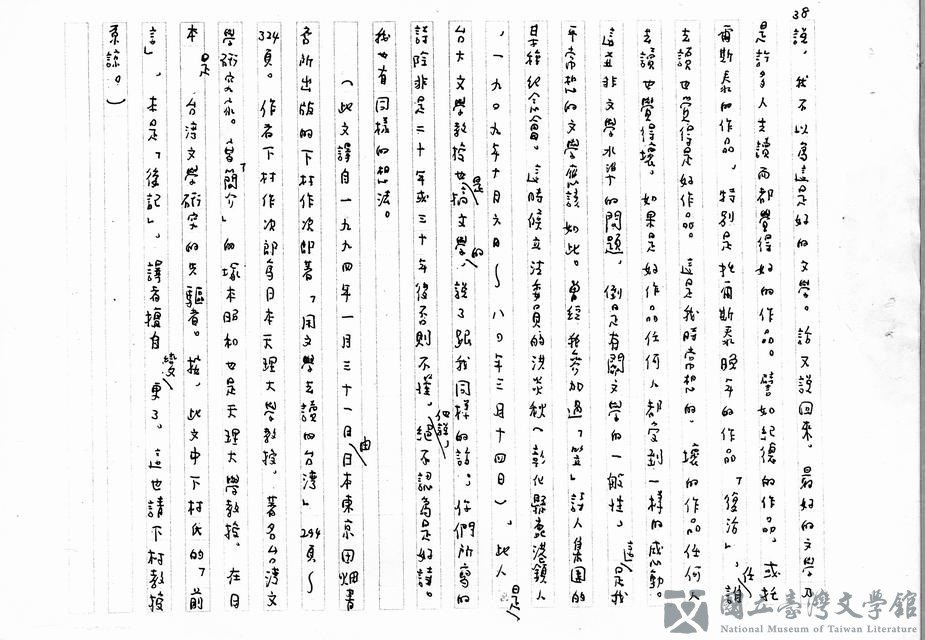 38
說，我不以為這是好的文學。話又說回來，最好的文學乃
是許多人去讀而都覺得好的作品。譬如紀德的作品，或托
爾斯泰的作品，特別是托爾斯泰晚年的作品「復活」，誰
去讀也覺得是好作品。這是我時常想的，壞的作品任何人
去讀也覺得壞，如果是好作品任何人都受到一樣的感動。
這並非文學水準的問題，倒是有關文學的一般性，這是我
平常想的文學應該如此。曾經我參加過「笠」詩人集團的
某種紀念會。這時候立法委員的洪炎秋（彰化縣鹿港鎮人
，一九〇九年十月六日～八〇年三月十四日），此人是
台大文學教授也是搞文學的，說了跟我同樣的話；你們所寫的
詩除非是二十年或三十年後否則不懂，但我絕不認為是好詩。
我也有同樣的想法。
（此文譯自一九九四年一月三十一日由日本東京田畑書
店所出版的下村作次郎著「用文學去讀的台灣」294頁～
324頁。作者下村作次郎為日本天理大學教授，著名台灣文
學研究家。「簡介」的塚本昭和也是天理大學教授。在日
本是台灣文學研究的先驅者。按，此文中下村氏的「前
言」，本是「後記」，譯者擅自變更了，這也請下村教授
原諒。）
國立臺灣文學館
National Museum of Taiwan Literature